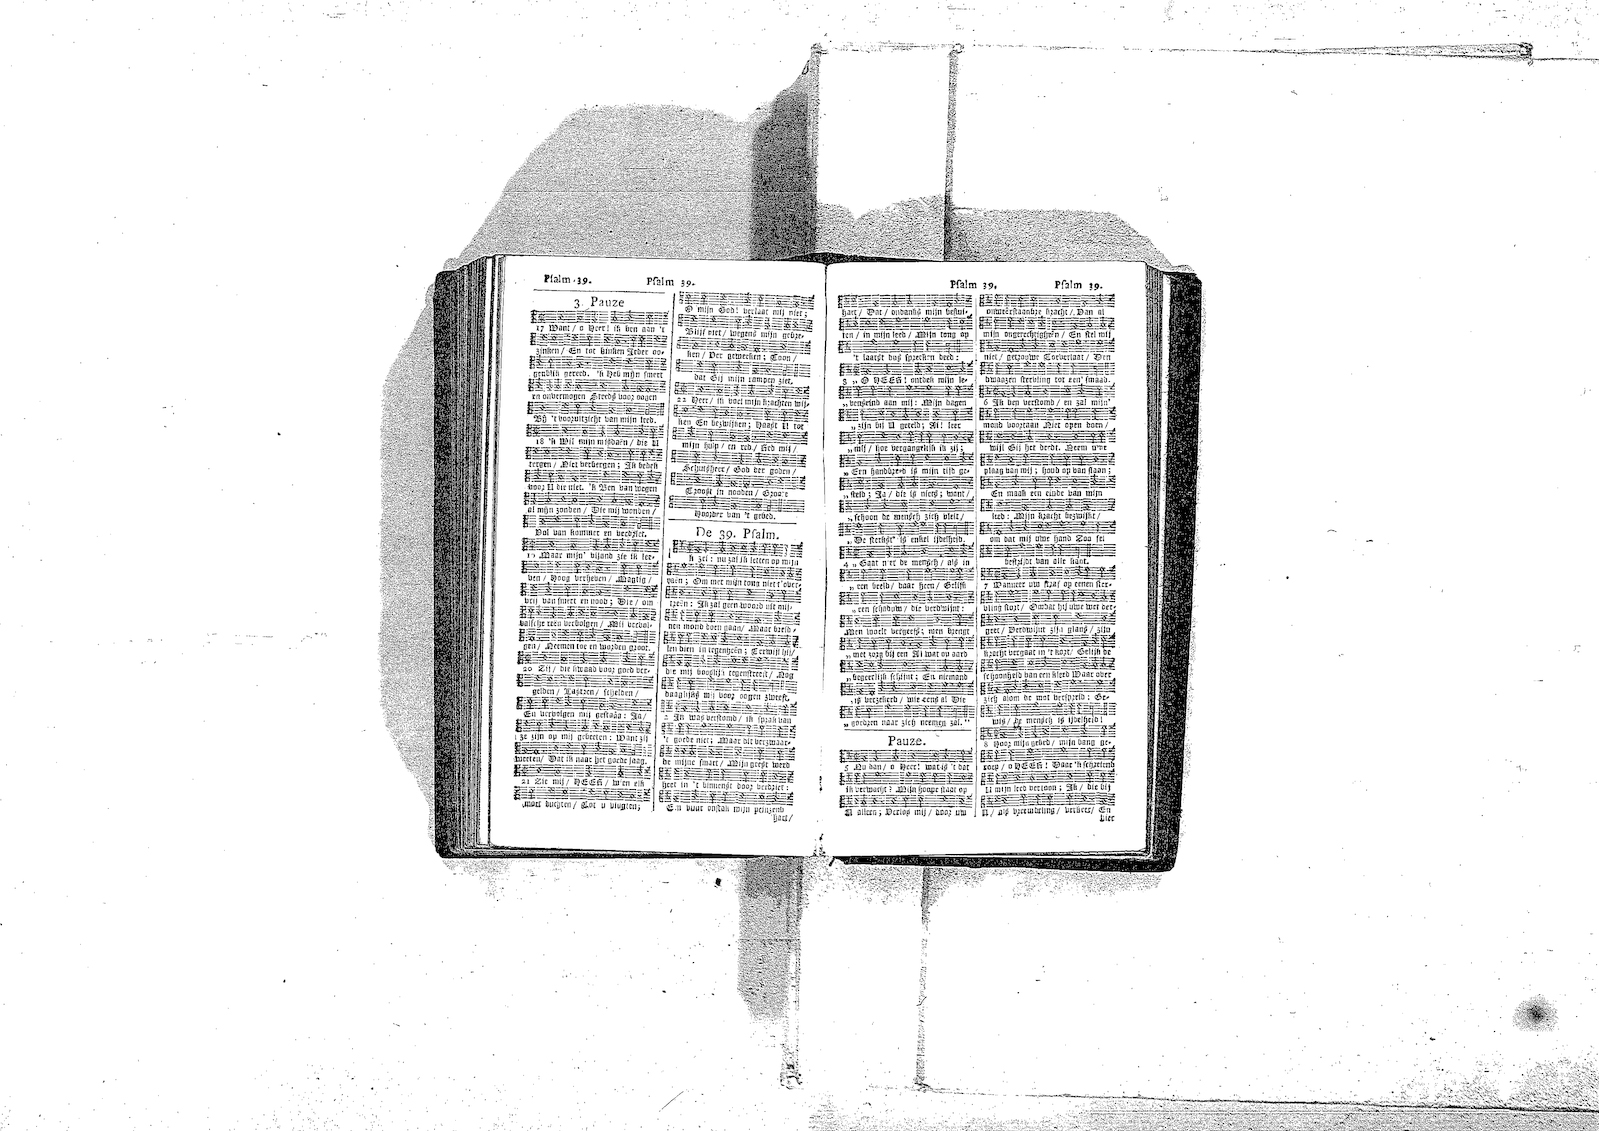 Psalm 39. Psalm 39.
3. Pauze
17 Want/ o Heer! ik ben aan 't
zinken/ En tot hinken Ieder oo-
genblik gereed. 'k Heb mijn smert
en onvermogen Steeds voor oogen
Bij 't vooruitzicht van mijn leed.
18 'k Wil mijn misdaên/ die U
tergen/ Niet verbergen; Ik bedek
voor U die niet. 'k Ben van wegen
al mijn zonden/ Die mij wonden/
Vol van kommer en verdriet.
19 Maar mijn' vijand zie ik le-
ven/ Hoog verheven/ Magtig/
vrij van smert en nood; Die/ om
valsche reen vervolgen/ Mij
gen/ Neemen toe en worden groot.
20 Zij/ die kwaad voor goed ver-
gelden/ Lastren/ schelden/
En vervolgen mij gestaâg: Ja/
ze zijn op mij gebeten: Want zij
weeten/ Dat ik naar het goede jaag.
21 Zie mij/ HEER/ w'en elk
moet duchten/ Tot u vlugten;
O mijn God! verlaat mij niet;
Blijf niet/ wegens mijn gebre-
ken/ Ver geweeken; Toon/
dat Gij mijn rampen ziet.
22 Heer/ ik voel mijn krachten wij-
ken En bezwijken; Haast U tot
mijn hulp/ en red/ Red mij/
Schutsheer/ God der goden/
Troost in nooden/ Groote
Hoorder van 't gebed.
De 39. Psalm.
k zei: nu zal ik letten op mijn
paên; Om met mijn tong niet t' over-
treên: Ik zal geen woord uit mij-
nen mond doen gaan/ Maar breid-
len dien in tegenheên; Terwijl hij/
die mij booslijk tegenstreeft/ Nog
daaglijks mij voor oogen zweeft.
2 Ik was verstomd/ ik sprak van
't goede niet; Maar dit verzwaar-
de mijne smart/ Mijn geest werd
heet in 't binnenst door verdriet:
Een vuur ontstak mijn peinzend
hart/
Psalm 39. Psalm 39.
hart/ Dat/ ondanks mijn beslui-
ten/ in mijn leed/ Mijn tong op
't laatst dus spreeken deed:
3 „ O HEER! ontdek mijn le-
„ venseind aan mij: Mijn dagen
„ zijn bij U geteld; Ai! leer
„ mij/ hoe vergangelijk ik zij;
„ Een handbreed is mijn tijd ge-
„ steld; Ja/ die is niets; want/
„ schoon de mensch zich vleit/
„ De sterkst' is enkel ijdelheid.
4 „ Gaat niet de mensch/ als in
„ een beeld/ daar heen/ Gelijk
„ een schaduw/ die verdwijnt:
Men woelt vergeefs; men brengt
„ met zorg bij een Al wat op aard
„ begeerlijk schijnt; En niemand
„ is verzekerd/ wie eens al Die
„ goedren naar zich neemen zal."
Pauze.
5 Nu dan/ o Heer! wat is 't dat
ik verwacht? Mijn hoope staat op
U alleen; Verlos mij/ door uw
onweêrstaanbre kracht/ Van al
mijn ongerechtigheên/ En stel mij
niet/ getrouwe Toeverlaat/ Den
dwaazen sterveling tot een' smaad.
6 Ik ben verstomd/ en zal mijn'
mond voortaan Niet open doen/
wijl Gij het deedt. Neem uwe
plaag van mij; houd op van slaan;
En maak een einde van mijn
leed: Mijn kracht bezwijkt/
om dat mij uwe hand Zoo fel
bestrijdt van alle kant.
7 Wanneer uw straf op eenen ster-
vling stort/ Omdat hij uwe wet ver-
geet/ Verdwijnt zijn glans/ zijn
kracht vergaat in 't kort/ Gelijk de
schoonheid van een kleed Waar over
zich alom de mot verspreid: Ge-
wis/ de mensch is ijdelheid!
8 Hoor mijn gebed/ mijn bang ge-
roep/ o HEER! Daar 'k schreiend
U mijn leed vertoon; Ik/ die bij
U/ als vreemdeling/ verkeer/ En
hier